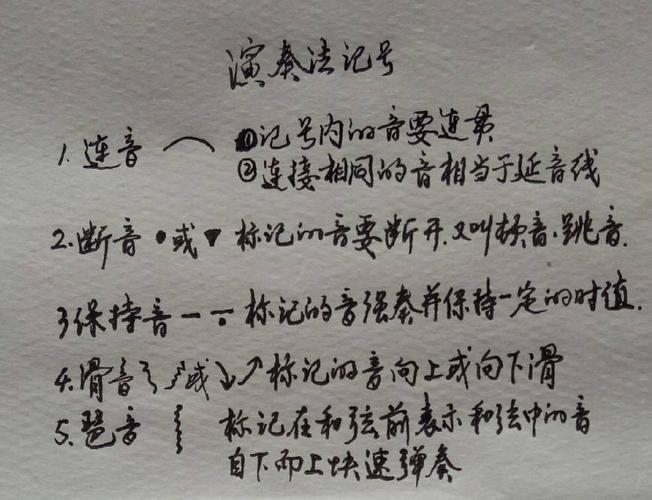 演奏法记号
1.连音 ⌒ ①记号内的音要连贯
②连接相同的音相当于延音线
2.断音 •或▼ 标记的音要断开.又叫顿音.跳音.
3保持音 — 标记的音强奏并保持一定的时值.
4.滑音 或↘↗标记的音向上或向下滑
5.琶音 标记在和弦前表示和弦中的音
自下而上快速弹奏